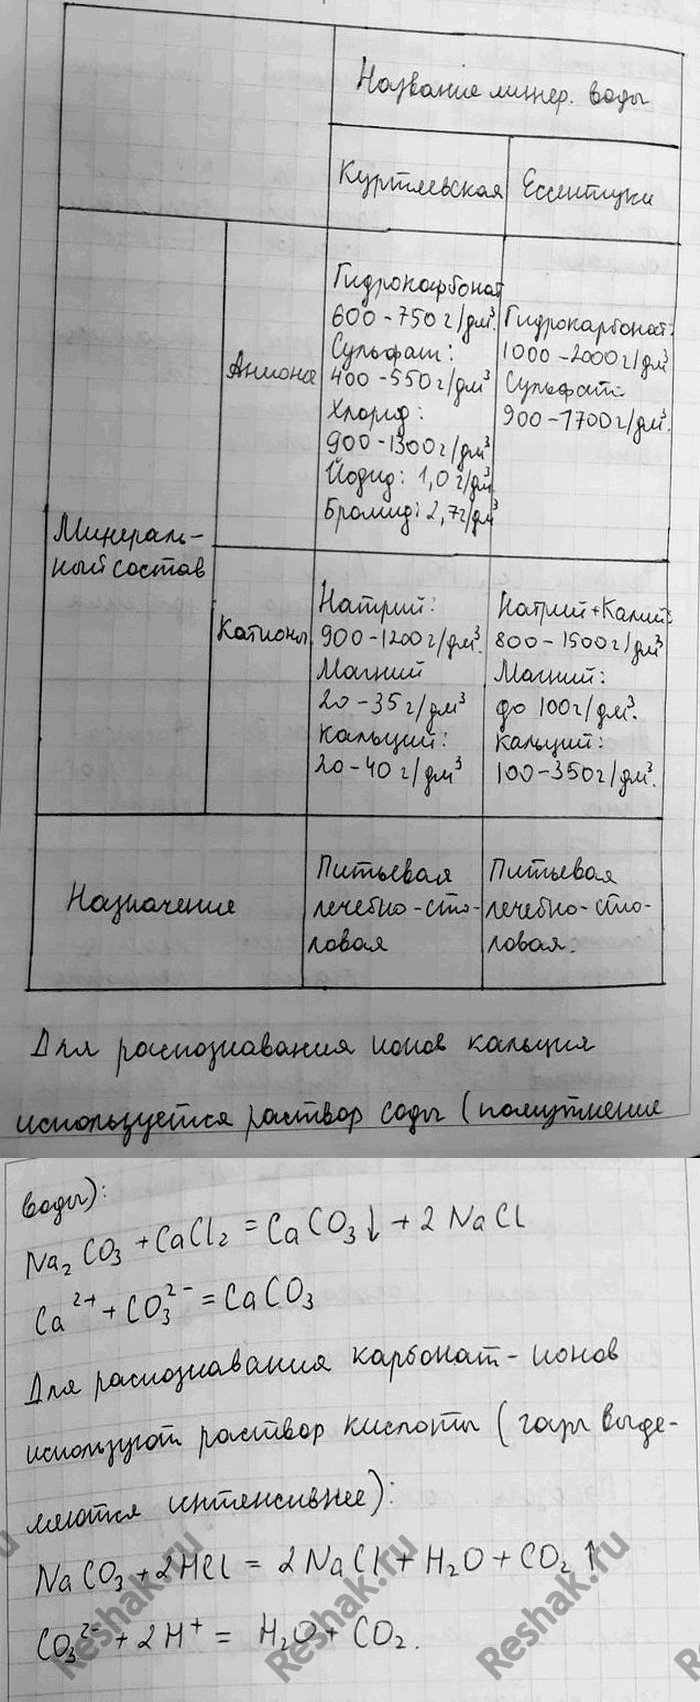 Название минер. воды
Куртяевская
Ессентуки
Минераль-
ный состав
Анионы
Гидрокарбонат
600-750 г/дм³.
Сульфат:
400-550 г/дм³
Хлорид:
900-1300 г/дм³
Йодид: 1,0 г/дм³
Бромид: 2,7 г/дм³
Гидрокарбонат:
1000-2000 г/дм³
Сульфат:
900-1700 г/дм³.
Катионы
Натрий:
900-1200 г/дм³.
Магний
20-35 г/дм³
Кальций:
20-40 г/дм³
Натрий+Калий:
800-1500 г/дм³
Магний:
до 100 г/дм³.
Кальций:
100-350 г/дм³.
Назначение
Питьевая
лечебно-сто-
ловая
Питьевая
лечебно-сто-
ловая.
Для распознавания ионов кальция
используется раствор соды (помутнение
воды):
Na₂CO₃ + CaCl₂ = CaCO₃↓ + 2 NaCl
Ca²⁺ + CO₃²⁻ = CaCO₃
Для распознавания карбонат-ионов
используют раствор кислоты (газы выде-
ляются интенсивнее):
NaCO₃ + 2HCl = 2NaCl + H₂O + CO₂↑
CO₃²⁻ + 2H⁺ = H₂O + CO₂.
Reshak.ru
Reshak.ru
Reshak.ru